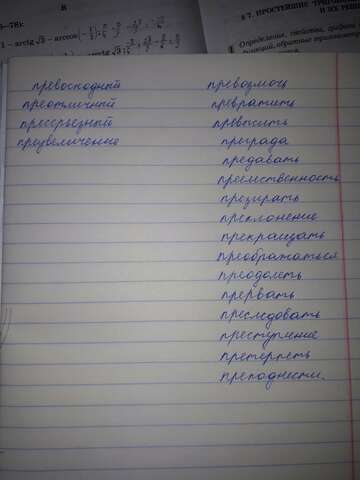 превосходный
преотличный
пресерьезный
преувеличение
превозмочь
превратить
превысить
преграда
предавать
преемственность
презирать
преклонение
прекращать
преображаться
преодолеть
прервать
преследовать
преступление
претерпеть
преподнести.
В
§ 7. ПРОСТЕЙШИЕ